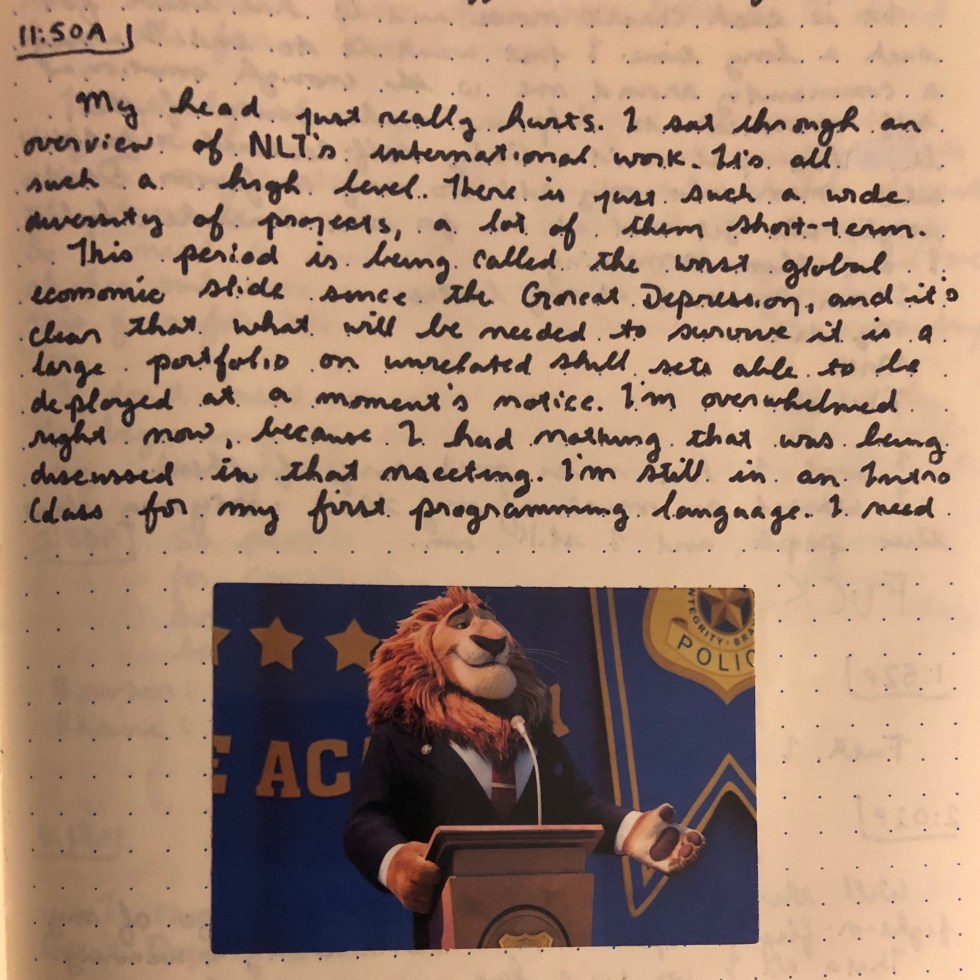 11:50A
My head just really hurts. I sat through an
overview of NLT's international work. It's all
such a high level. There is just such a wide
diversity of projects, a lot of them short-term.
This period is being called the worst global
economic slide since the Great Depression, and it's
clear that what will be needed to survive it is a
large portfolio on unrelated skill sets able to be
deployed at a moment's notice. I'm overwhelmed
right now, because I had nothing that was being
discussed in that meeting. I'm still in an Intro
Class for my first programming language. I need
INTEGRITY BRA
POLIC
E AC